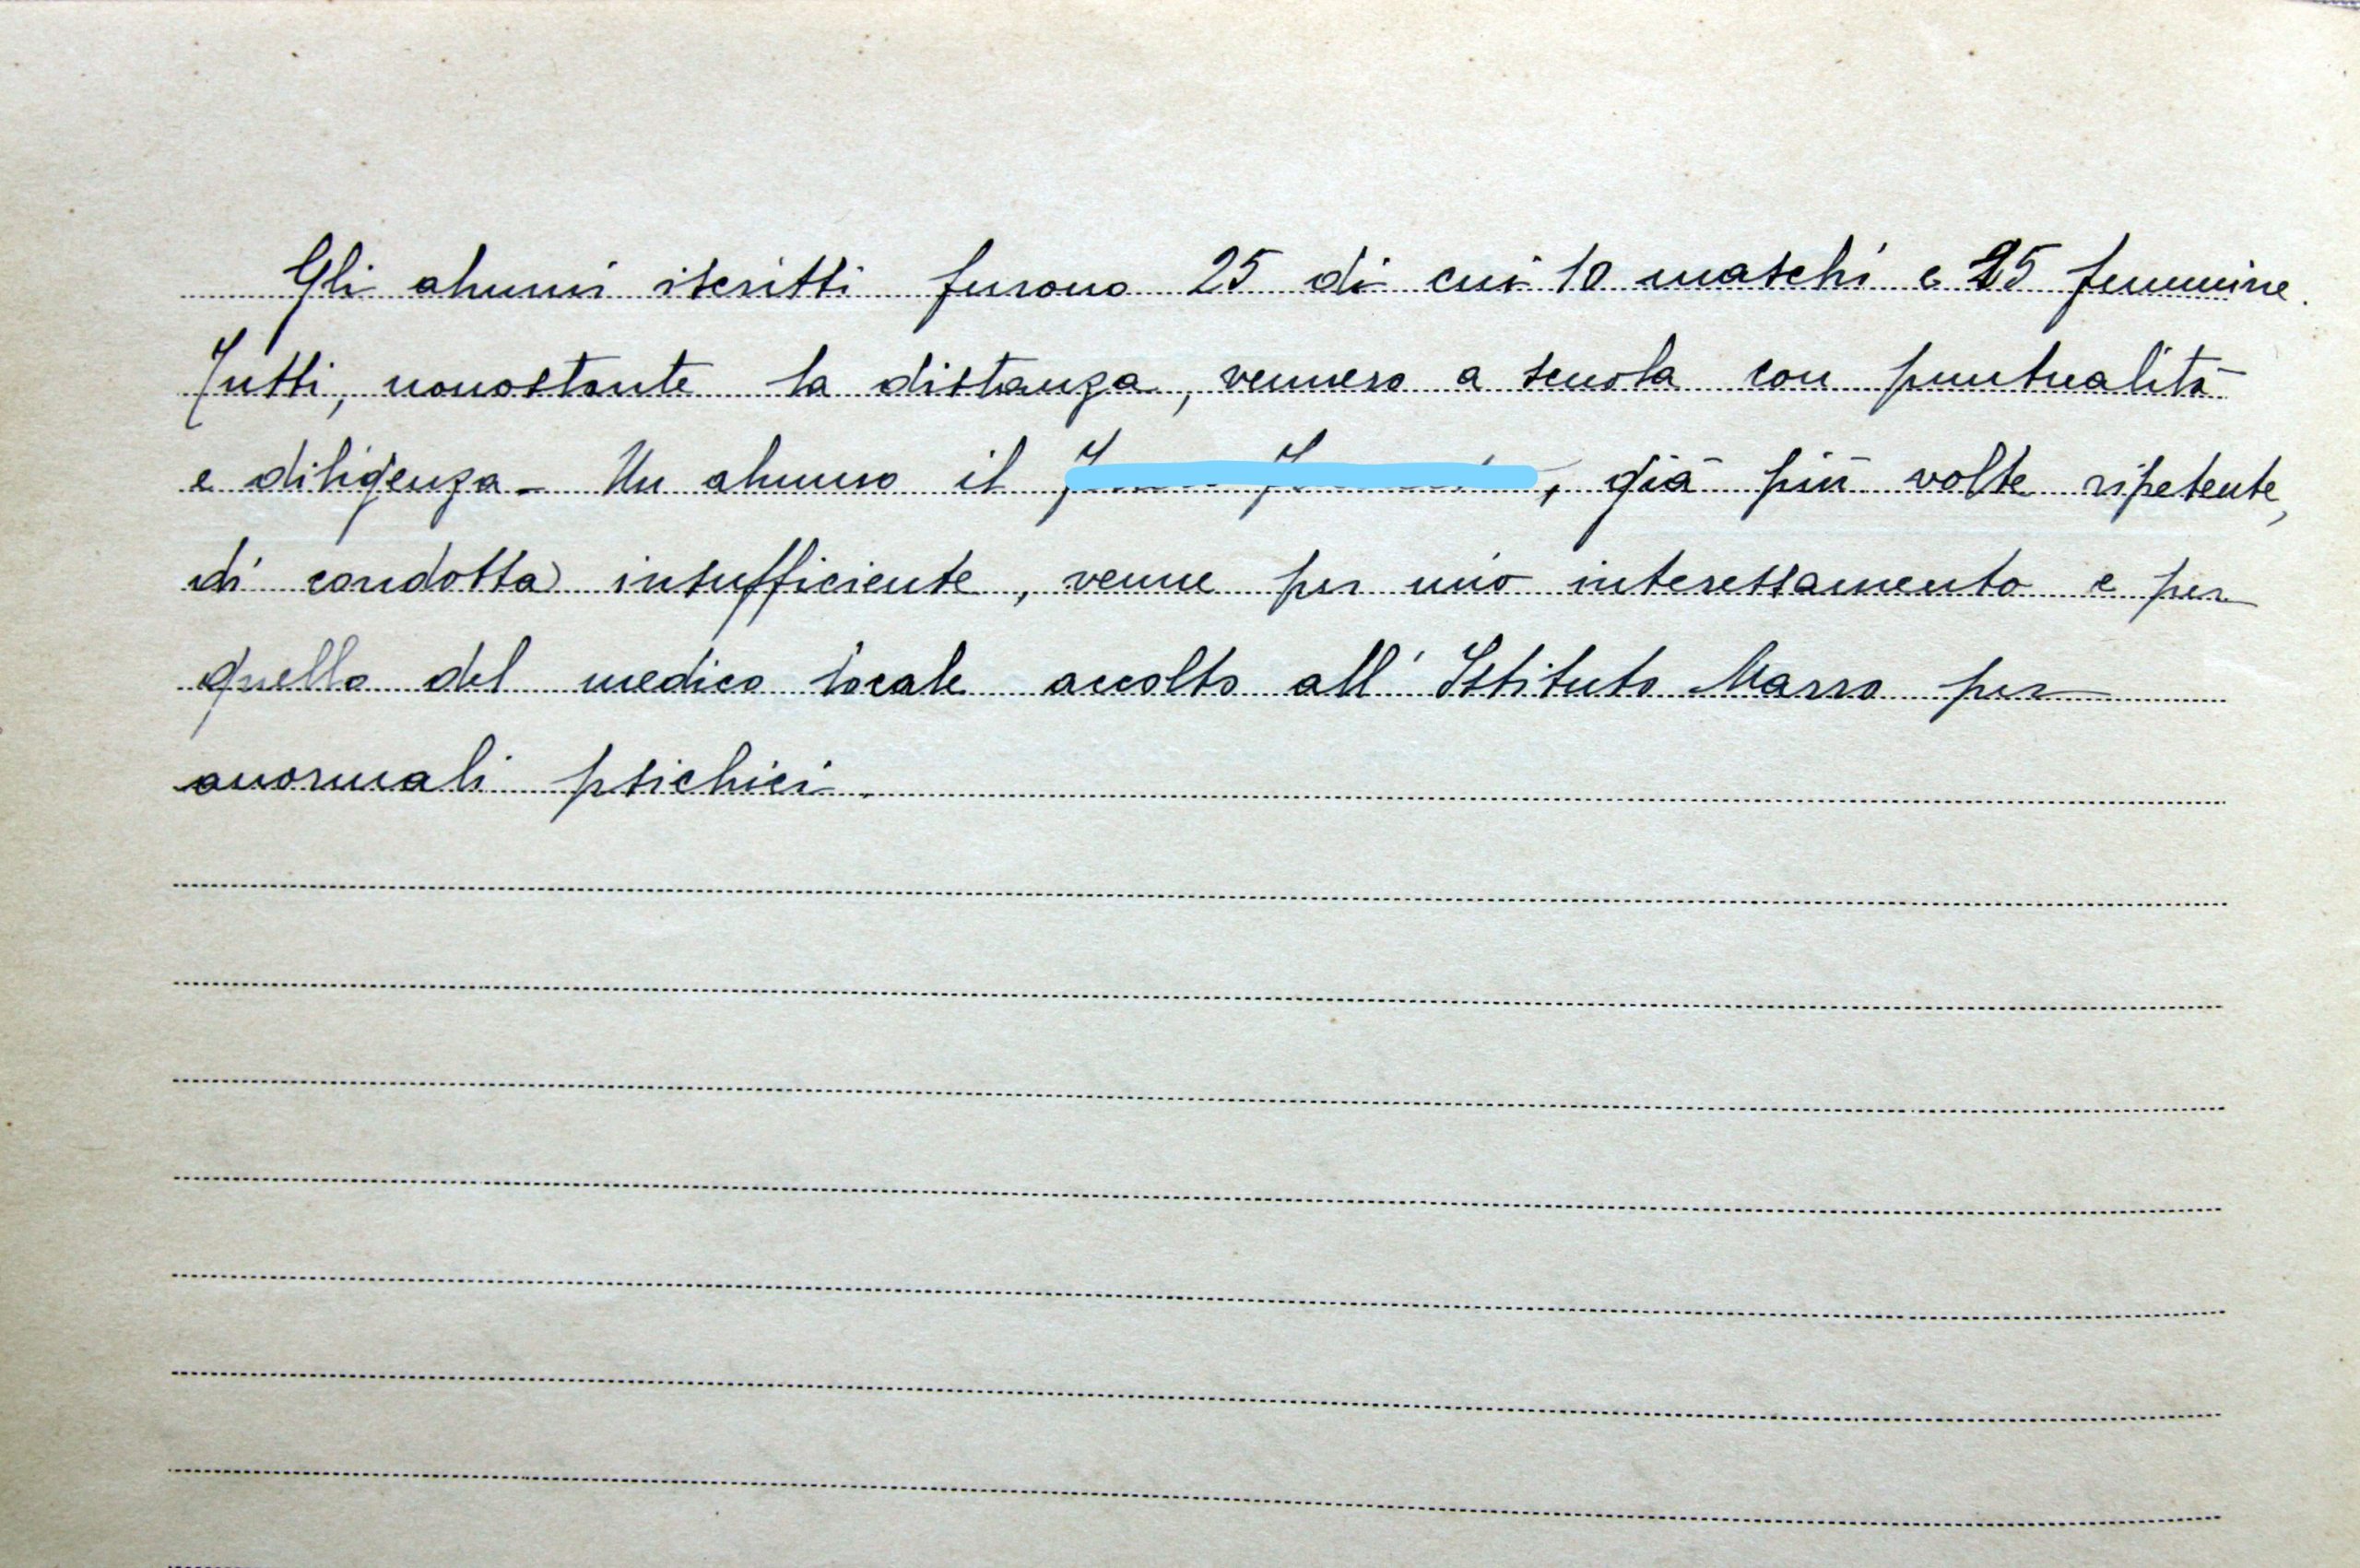 Gli alunni iscritti furono 25 di cui 10 maschi e 15 femmine.
Tutti, nonostante la distanza, vennero a scuola con puntualità
e diligenza - Un alunno il , già più volte ripetente,
di condotta insufficiente, venne per mio interessamento e per
quello del medico locale accolto all' Istituto Marro per
anormali psichici.